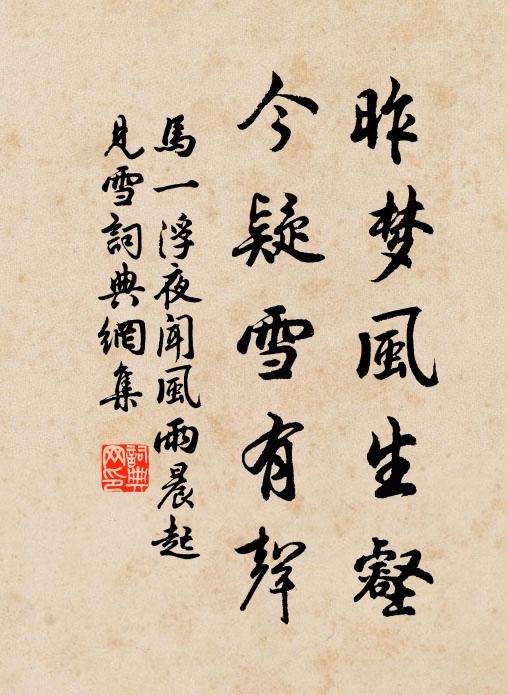 昨梦風生壑
今疑雪有聲
馬一浮夜聞風雨晨起
見雪詞典網集
詞典网印